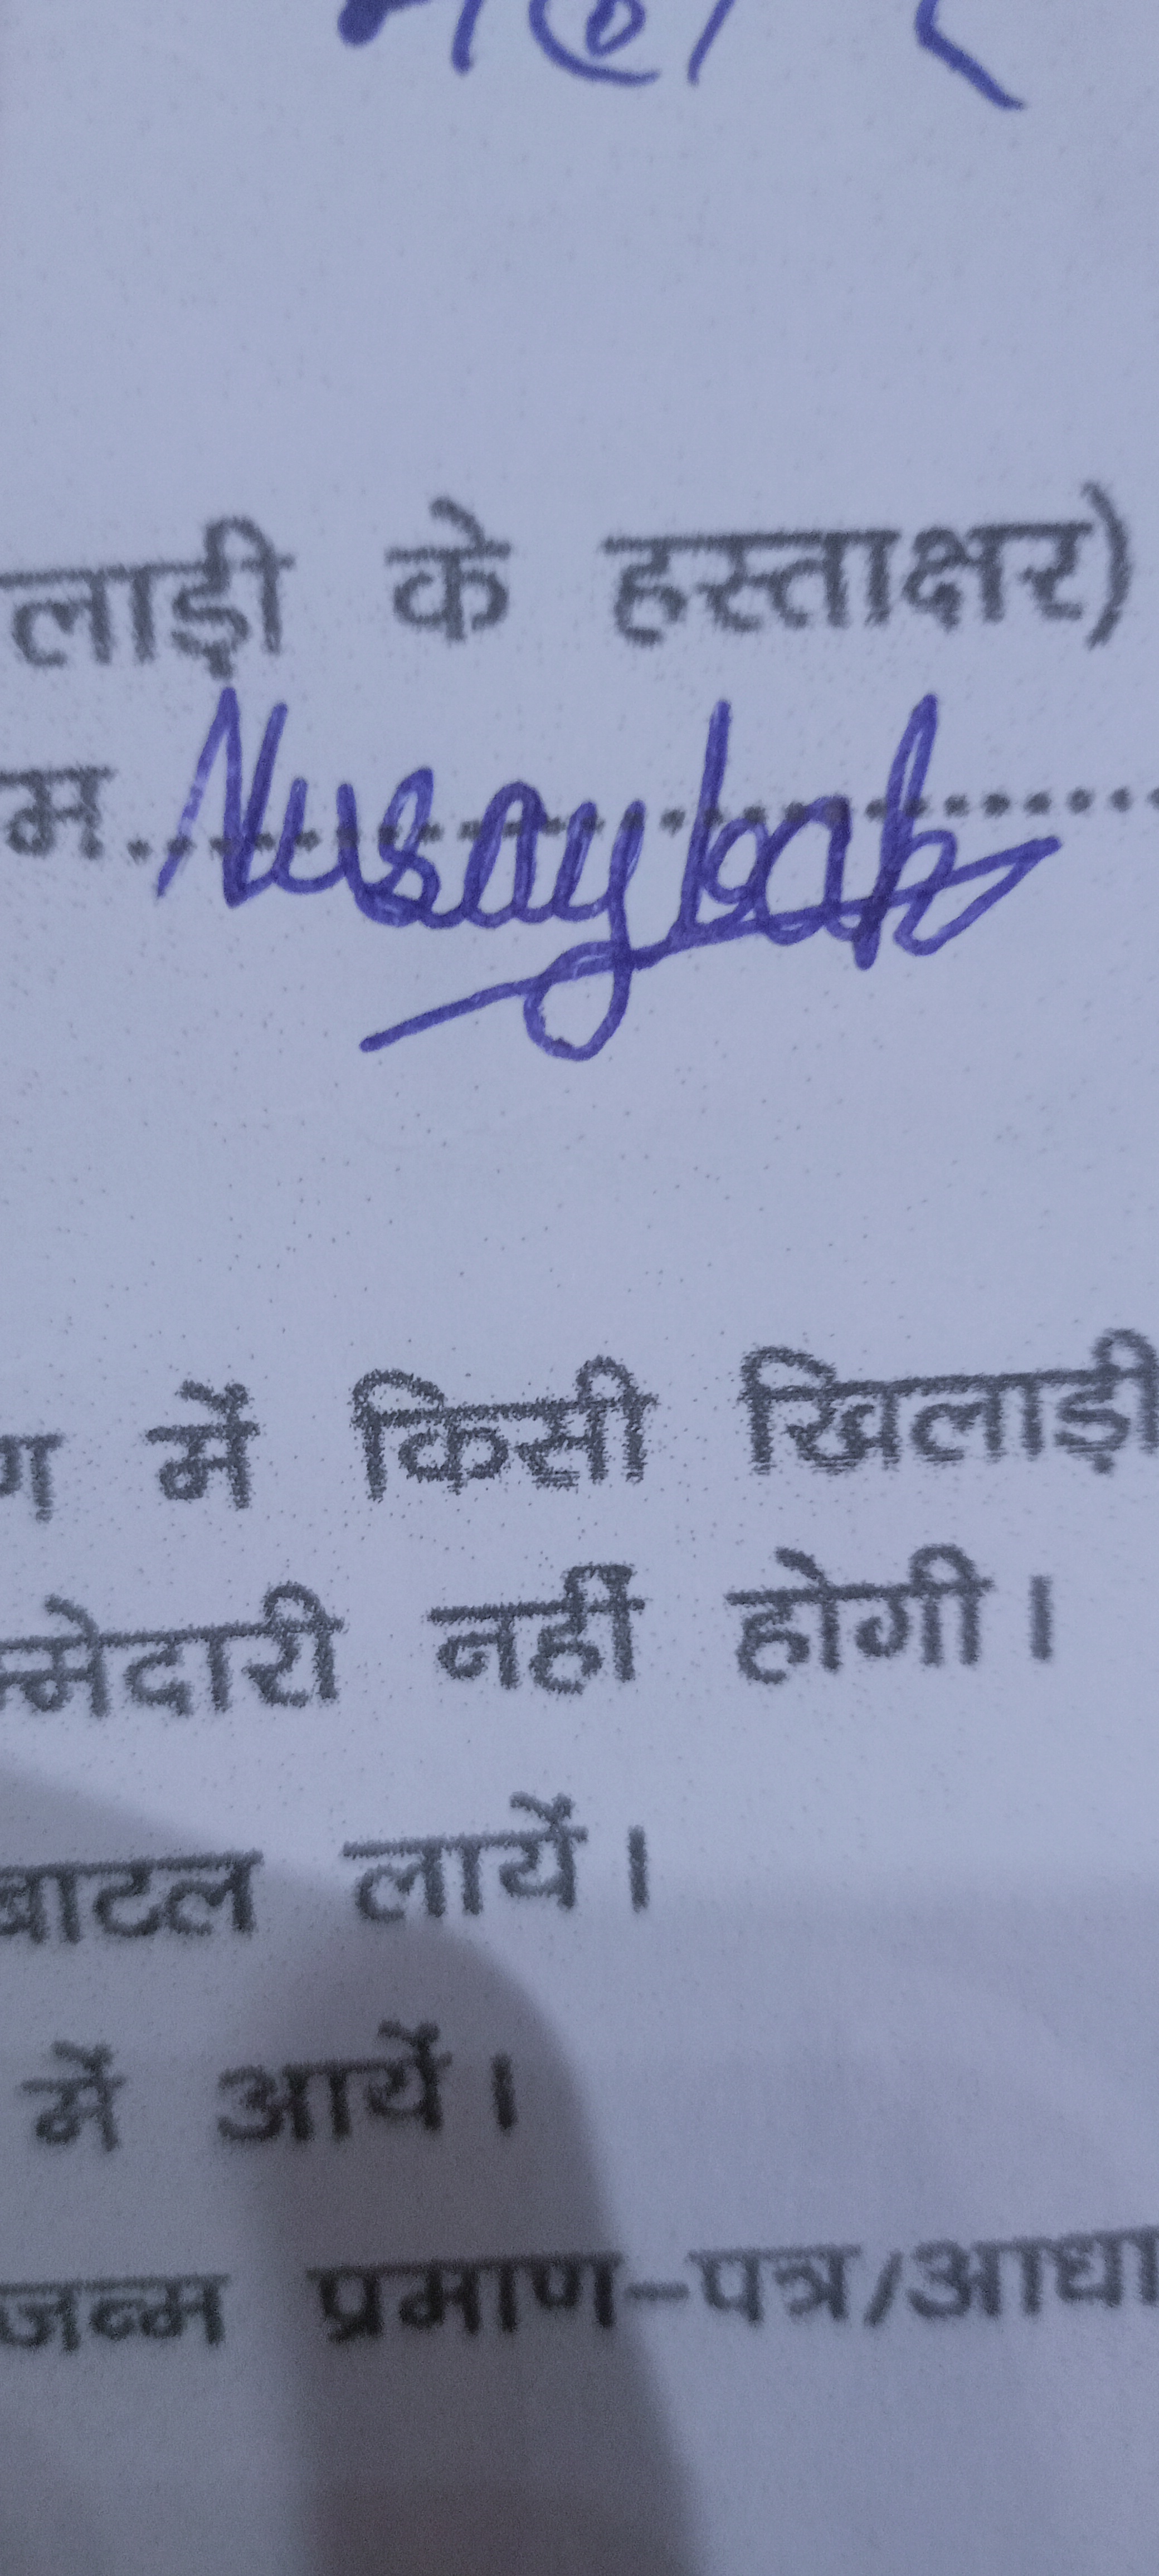 लाड़ी के हस्ताक्षर)
म.......Nusaybah.......
ग में किसी खिलाड़ी
म्मेदारी नहीं होगी।
बाटल लायें।
में आयें।
जन्म प्रमाण-पत्र/आधा